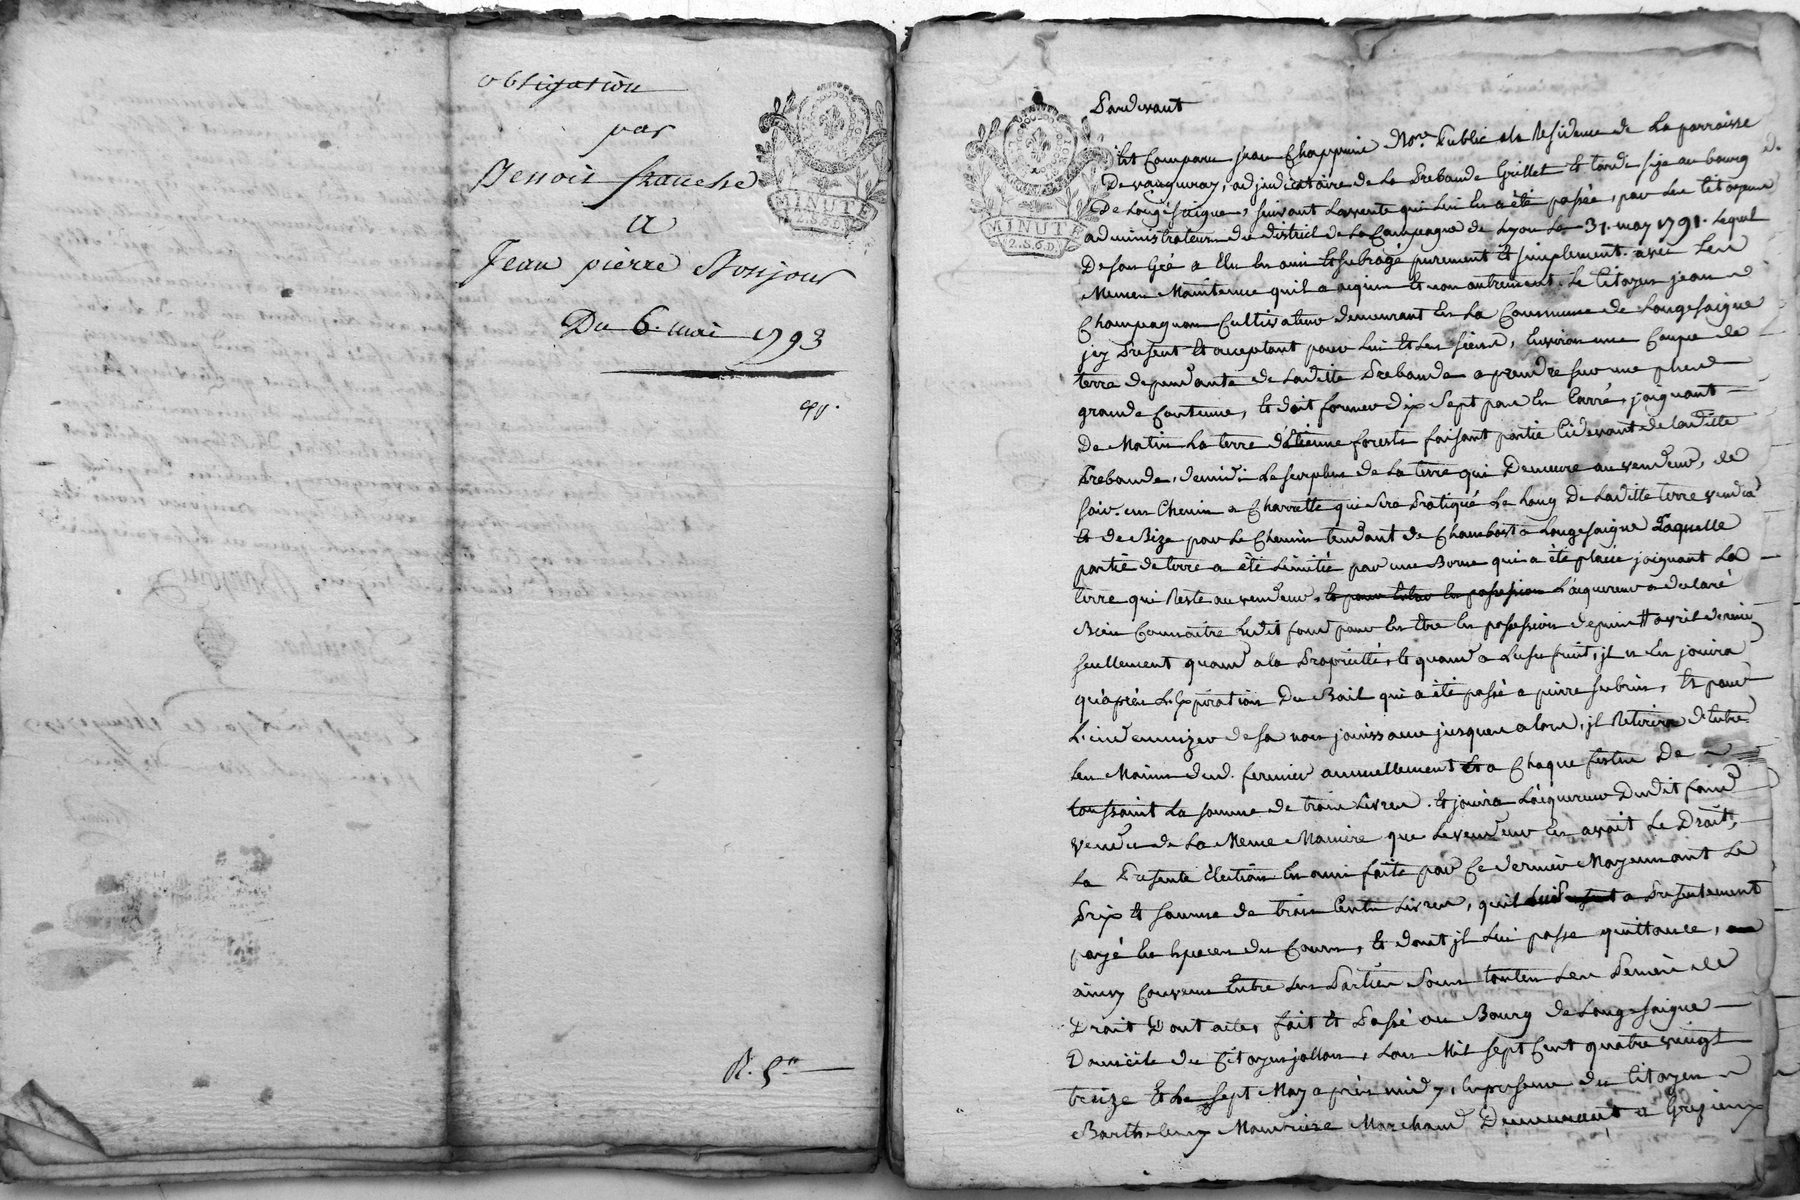 obligation
par
Benoit franche
a
Jean pierre Bonjour
Du 6. mai 1793
MINUTE
2.S.6.D.
R. 5
MINUTE
2.S.6.D.
Pardevant
Est Comparu jean Chapprie No.re Public ala Residence de La parroisse
De vaugneray, adjudicataire de La Prebande Grillet Et tarde sise au bourg de
De Longessaigne, suivant Lavente qui Lui En a été passée, par Les Citoyens
administrateurs du district de La Campagne de Lyon Le 31. may 1791. Lequel
De son Gré a Elu En ami Et subrogé purement Et simplement. avec Les
Memes Maintenue quil a aiquis Et non autrement. Le Citoyen jean
Champagnon Cultivateur demeurant En La Commune de Longesaigne
jcy Present Et acceptant pour Lui Et Les siens, Environ une Coupe de
terre dependante de Laditte Prebande a prendre sur une plus
grande Contenue, Et doit former dix sept pas En Carré, joignant
De Matin La terre d'Etienne forest faisant partie Cidevant de Laditte
Prebande, demidi Le surplus de La terre qui Demeure au vendeur, de
soir un Chemin a Charrette qui sera Pratiqué Le Long De Laditte terre vendue
Et de Bize par Le Chemin tendant de Chambost a Longesaigne Laquelle
partie de terre a été Limitée par une Borne qui a été placée joignant La
terre qui Reste au vendeur, et pour Entrer En possession L'aiquereur a declaré
Bien Connaitre Ledit fond pour En Etre En possession depuis avril dernier
seullement quand a la Proprietté, Et quand a Lusufruit, jl n En jouira
qu'après L'Expiration Du Bail qui a été passé a pierre subrin, Et pour
L'indemnizer de sa non jouissance jusques alors, jl Retirera d'Entre
Les Mains dud. fermier annuellement Et a Chaque festes De
toussaint La somme de trois Livres. Et jouira L'aiquereur Dudit fond
vendu de La Meme Maniere que Le vendeur En avait Le Droit,
La Presente Election En ami faite par Ce dernier Moyennant Le
Prix Et somme de trois Cents Livres, quil a Presentement
payé En Especes du Cours, Et dont jl Lui passe quittance,
ainsy Convenu Entre Les Parties sous toutes Les
Droit Dont acte, fait Et Passé au Bourg de Longesaigne
Domicile du Citoyen jallon, Lan Mil sept Cent quatre vingt
treize Et Le sept May après midy, En presence du Citoyen
Barthelemy Mauviere Marchand Demeurant a Grezieux